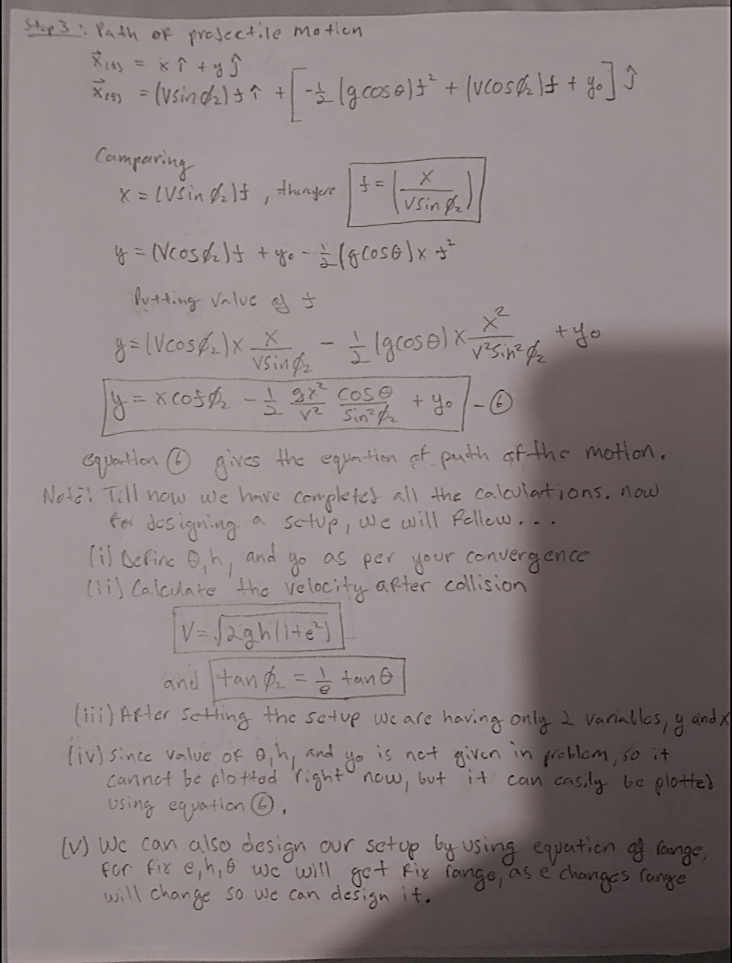 Step 3: Path of projectile motion
x⃗(t) = x î + y ĵ
x⃗(t) = (Vsinϕ₂) t î + [-½ (gcosθ)t² + (Vcosϕ₂)t + y₀] ĵ
Comparing
x = (Vsinϕ₂)t, therefore t = (x / Vsinϕ₂)
y = (Vcosϕ₂)t + y₀ - ½ (gcosθ) x t²
Putting value of t
y = (Vcosϕ₂) x x / Vsinϕ₂ - ½ (gcosθ) x x² / V²sin²ϕ₂ + y₀
y = x cotϕ₂ - ½ gx² / V² cosθ / sin²ϕ₂ + y₀ - ⑥
equation ⑥ gives the equation of path of the motion.
Note: Till now we have completed all the calculations. now
for designing a setup, we will follow...
(i) Define θ, h, and y₀ as per your convergence
(ii) Calculate the velocity after collision
V = √2gh(1+e²)
and tanϕ₂ = 1/e tanθ
(iii) After setting the setup we are having only 2 variables, y and x
(iv) Since value of θ, h, and y₀ is not given in problem, so it
cannot be plotted right now, but it can easily be plotted
using equation ⑥.
(v) We can also design our setup by using equation of range,
for fix e, h, θ we will get fix range, as e changes range
will change so we can design it.